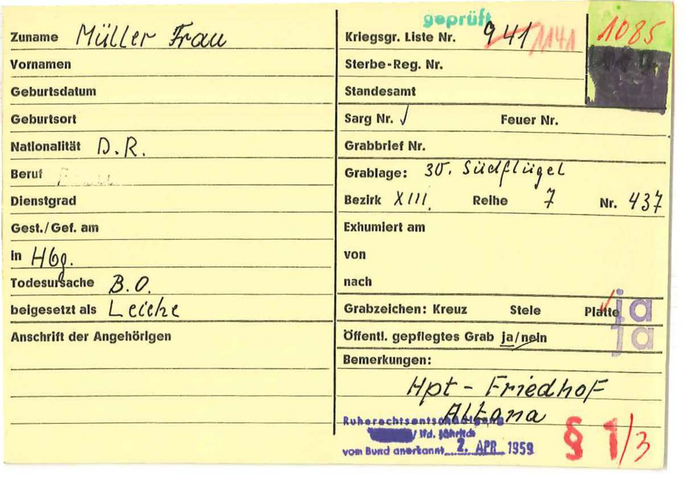 geprüft
Zuname Müller Frau
Vornamen
Geburtsdatum
Geburtsort
Nationalität D.R.
Beruf
Dienstgrad
Gest./Gef. am
in Hbg.
Todesursache B.O.
beigesetzt als Leiche
Anschrift der Angehörigen
Kriegsgr. Liste Nr. 941 1141
1085
Sterbe-Reg. Nr.
Standesamt
Sarg Nr. √ Feuer Nr.
Grabbrief Nr.
Grablage: 30. Südflügel
Bezirk XIII. Reihe 7 Nr. 437
Exhumiert am
von
nach
Grabzeichen: Kreuz Stele Platte ja
Öffentl. gepflegtes Grab ja/nein ja
Bemerkungen:
Hpt - Friedhof
Altona
Ruherechtsentschädigung
/ lfd. jährlich
vom Bund anerkannt 2. APR. 1959
§ 1/3